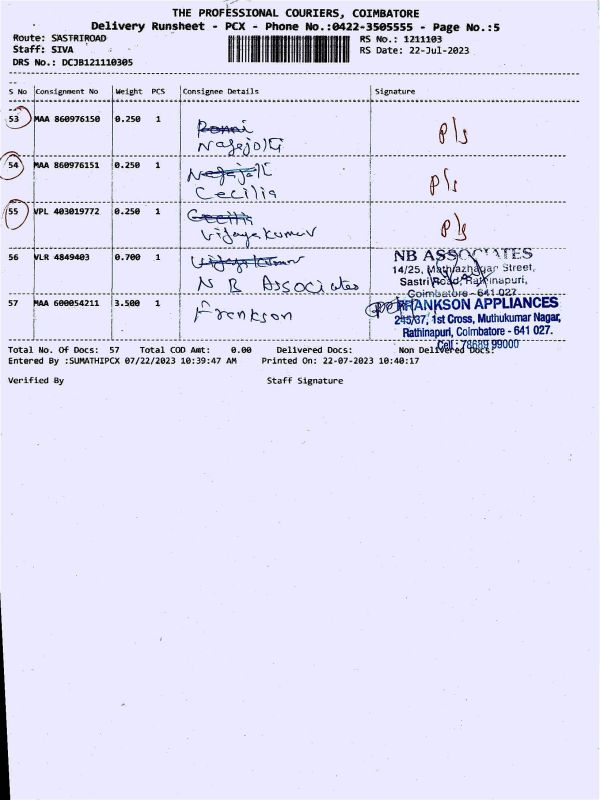 THE PROFESSIONAL COURIERS, COIMBATORE
Delivery Runsheet - PCX - Phone No.:0422-3505555 - Page No.:5
Route: SASTRIROAD RS No.: 1211103
Staff: SIVA RS Date: 22-Jul-2023
DRS No.: DCJB121110305
S No Consignment No Weight PCS Consignee Details Signature
53 MAA 860976150 0.250 1 P/s
54 MAA 860976151 0.250 1 P/s
Cecilia
55 VPL 403019772 0.250 1 Cecilia P/s
Vijayakumar
56 VLR 4849403 0.700 1 Vijayakumar NB ASSOCIATES
N B Associates 14/25, Mathiazhagar Street,
Sastri Road, Rathinapuri,
Coimbatore - 641 027
57 MAA 600054211 3.500 1 Frankson FRANKSON APPLIANCES
245/37, 1st Cross, Muthukumar Nagar,
Rathinapuri, Coimbatore - 641 027.
Cell : 78689 99000
Total No. Of Docs: 57 Total COD Amt: 0.00 Delivered Docs: Non Delivered Docs:
Entered By :SUMATHIPCX 07/22/2023 10:39:47 AM Printed On: 22-07-2023 10:40:17
Verified By Staff Signature